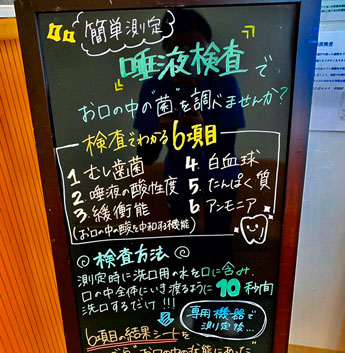 簡単測定
唾液検査で
お口の中の"菌"を調べませんか?
検査でわかる6項目
1. むし歯菌
2. 唾液の酸性度
3. 緩衝能
(お口の中の酸を中和する機能)
4. 白血球
5. たんぱく質
6 アンモニア
検査方法
測定時に洗口用の水を口に含み、
口の中全体にいき渡るように10秒間
洗口するだけ!!!
専用機器で
測定後…
6項目の結果シートを
お口の中の状態にあった